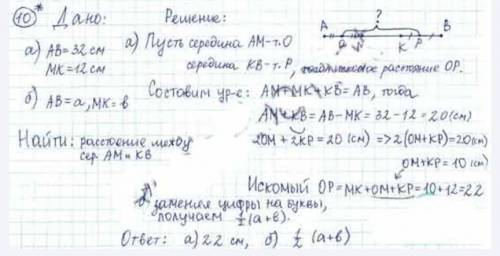 10* Дано: Решение:
а) AB=32см
MK=12см
б) AB=a, MK=в
Найти: расстояние между
сер. AM и KB
а) Пусть середина AM-т.O
середина KB-т.P, расстояние OP.
?
A M K P B
Составим ур-е: AM+MK+KB=AB, тогда
AM+KB=AB-MK=32-12=20(см)
2OM+2KP=20(см) =>2(OM+KP)=20(см)
OM+KP=10(см)
Искомый OP=MK+OM+KP=10+12=22
заменив цифры на буквы,
получаем 1/2(a+в).
Ответ: а) 22 см, б) 1/2 (a+в)